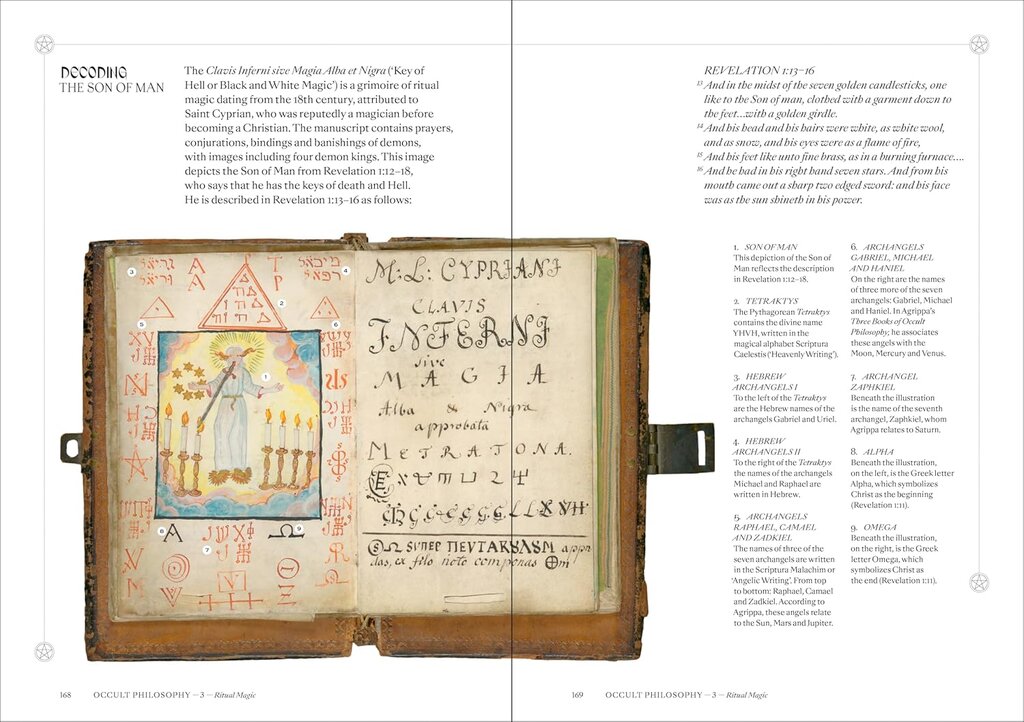 DECODING
THE SON OF MAN
The Clavis Inferni sive Magia Alba et Nigra (‘Key of
Hell or Black and White Magic’) is a grimoire of ritual
magic dating from the 18th century, attributed to
Saint Cyprian, who was reputedly a magician before
becoming a Christian. The manuscript contains prayers,
conjurations, bindings and banishings of demons,
with images including four demon kings. This image
depicts the Son of Man from Revelation 1:12–18,
who says that he has the keys of death and Hell.
He is described in Revelation 1:13–16 as follows:
REVELATION 1:13–16
13 And in the midst of the seven golden candlesticks, one
like to the Son of man, clothed with a garment down to
the feet…with a golden girdle.
14 And his head and his hairs were white, as white wool,
and as snow, and his eyes were as a flame of fire,
15 And his feet like unto fine brass, as in a burning furnace….
16 And he had in his right hand seven stars. And from his
mouth came out a sharp two edged sword: and his face
was as the sun shineth in his power.
M: L: CYPRIANI
CLAVIS
INFERNI
sive
MAGIA
Alba & Nigra
approbata
METRATONA.
1. SON OF MAN
This depiction of the Son of
Man reflects the description
in Revelation 1:12–18.
2. TETRAKTYS
The Pythagorean Tetraktys
contains the divine name
YHVH, written in the
magical alphabet Scriptura
Caelestis (‘Heavenly Writing’).
3. HEBREW
ARCHANGELS I
To the left of the Tetraktys
are the Hebrew names of the
archangels Gabriel and Uriel.
4. HEBREW
ARCHANGELS II
To the right of the Tetraktys
the names of the archangels
Michael and Raphael are
written in Hebrew.
5. ARCHANGELS
RAPHAEL, CAMAEL
AND ZADKIEL
The names of three of the
seven archangels are written
in the Scriptura Malachim or
‘Angelic Writing’. From top
to bottom: Raphael, Camael
and Zadkiel. According to
Agrippa, these angels relate
to the Sun, Mars and Jupiter.
6. ARCHANGELS
GABRIEL, MICHAEL
AND HANIEL
On the right are the names
of three more of the seven
archangels: Gabriel, Michael
and Haniel. In Agrippa’s
Three Books of Occult
Philosophy, he associates
these angels with the
Moon, Mercury and Venus.
7. ARCHANGEL
ZAPHKIEL
Beneath the illustration
is the name of the seventh
archangel, Zaphkiel, whom
Agrippa relates to Saturn.
8. ALPHA
Beneath the illustration,
on the left, is the Greek letter
Alpha, which symbolizes
Christ as the beginning
(Revelation 1:11).
9. OMEGA
Beneath the illustration,
on the right, is the Greek
letter Omega, which
symbolizes Christ as
the end (Revelation 1:11).
168 OCCULT PHILOSOPHY — 3 — Ritual Magic
169 OCCULT PHILOSOPHY — 3 — Ritual Magic